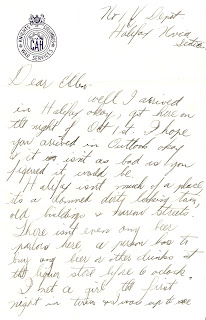 No 1 Y Depot
Halifax Nova
Scotia
Dear Ellen
Well I arrived
in Halifax okay, got here on
the night of Oct 1st. I hope
you arrived in Outlook okay
& it isn't as bad as you
figured it would be.
Halifax isn't much of a place
its a damned dirty looking town,
old buildings & narrow streets.
There isn't even any beer
parlors here, a person has to
buy any beer or other drinks at
the liquor store before 6 o'clock.
I met a girl the first
night in town & was up to see